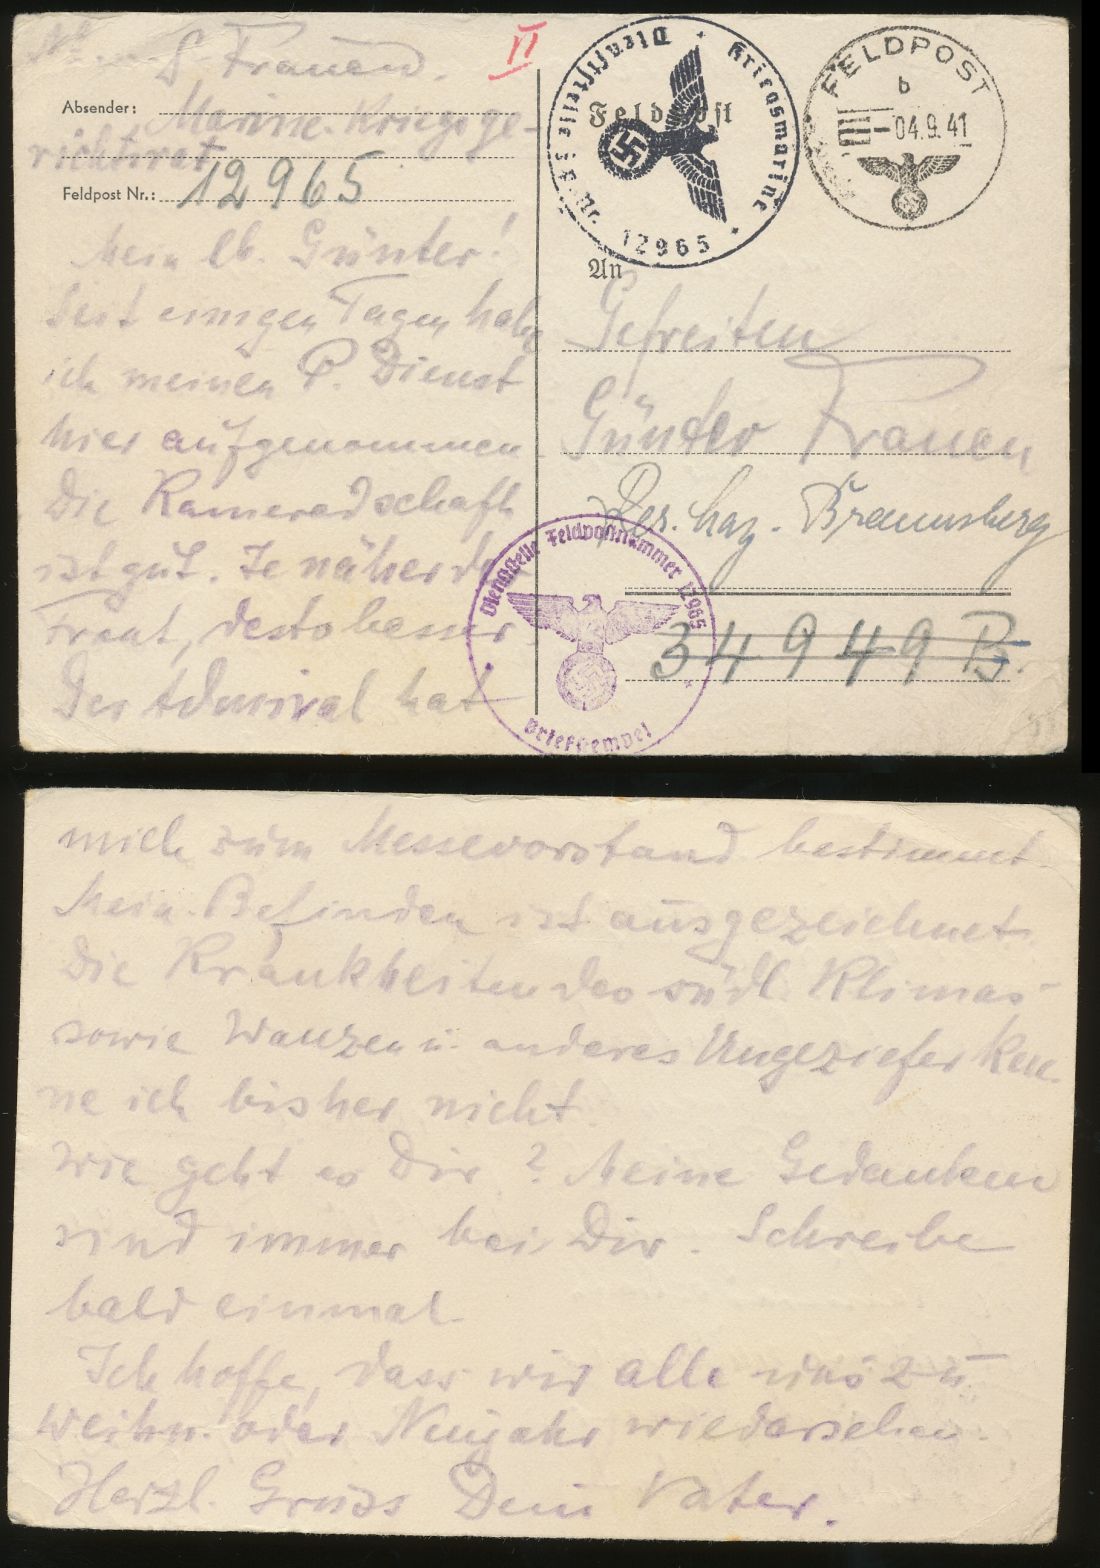 S. Frauen.
Absender: Marine-Kriegsge-
richtsrat
Feldpost Nr.: 12965
Mein lb. Günter!
Seit einigen Tagen habe
ich meinen P. Dienst
hier aufgenommen
Die Kameradschaft
ist gut. Je näher der
Front, desto besser
Der Admiral hat
II
Feldpost
Kriegsmarine
12965
FELDPOST
b
-04.9.41
An
Gefreiten
Günter Frauen
Res. Laz. Braunsberg
34949 B.
Dienststelle Feldpostnummer 12965
Briefstempel
mich zum Messevorstand bestimmt
Mein Befinden ist ausgezeichnet.
Die Krankheiten des südl. Klimas
sowie Wanzen u. anderes Ungeziefer ken-
ne ich bisher nicht.
Wie geht es Dir? Meine Gedanken
sind immer bei Dir. Schreibe
bald einmal.
Ich hoffe, dass wir alle uns zu
Weihn. oder Neujahr wiedersehen.
Herzl. Gruss Dein Vater.